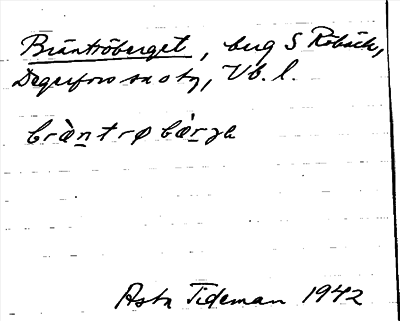 Bränttöberget, berg S Röbäck,
Degerfors sn o tg, Vb. l.
bràntrø bàrga
Asta Tideman 1942